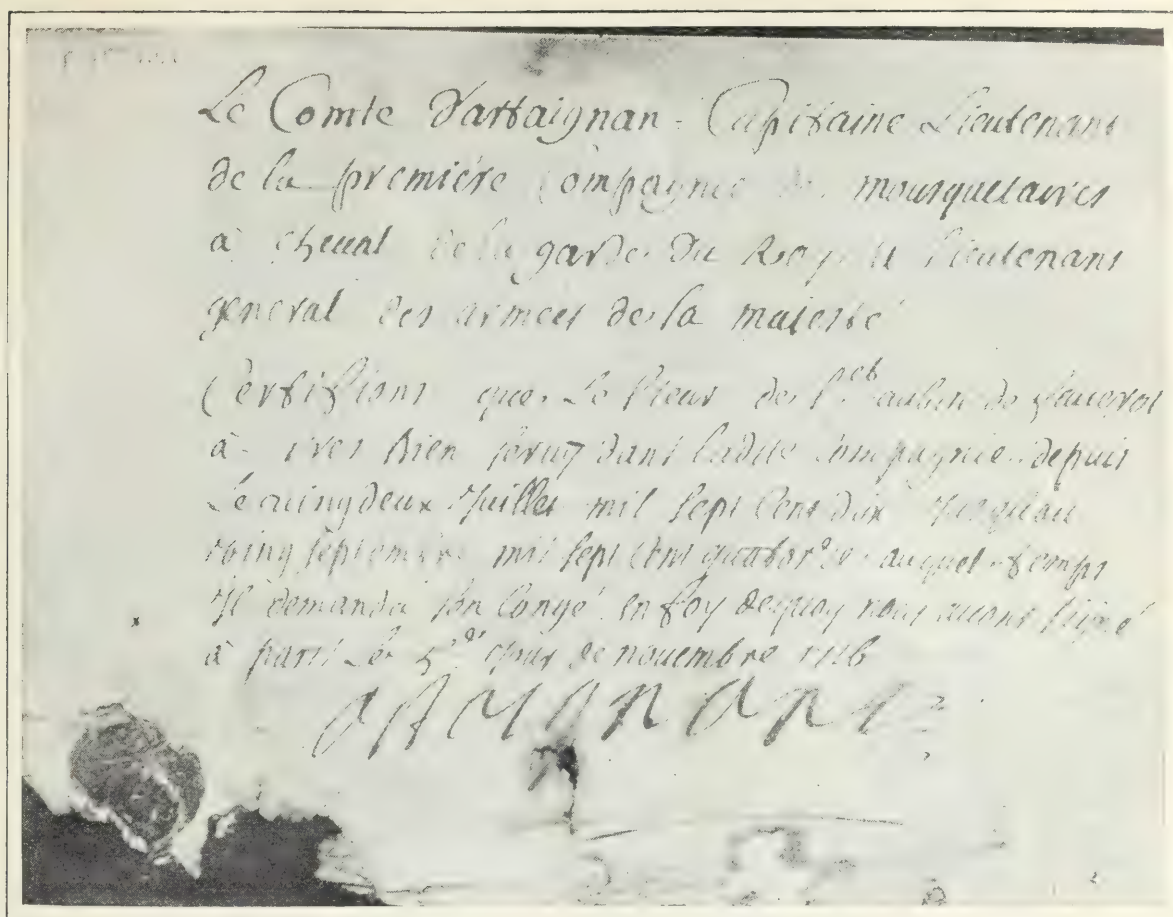 Le Comte Dartaignan Capitaine Lieutenant
de la premiere Compagnie de mousquetaires
à cheual de la garde du Roy et lieutenant
general des armées de sa maiesté
Certifions que Le sieur de St aubin de
à tres bien seruy dans ladite compagnie depuis
Le uingdeux Juillet mil sept cent dix Jusquau
uing septembre mil sept cent quatorze auquel temps
Il demanda son congé en foy dequoy nous auons signé
à paris Le jour de nouembre 1716
artaignan